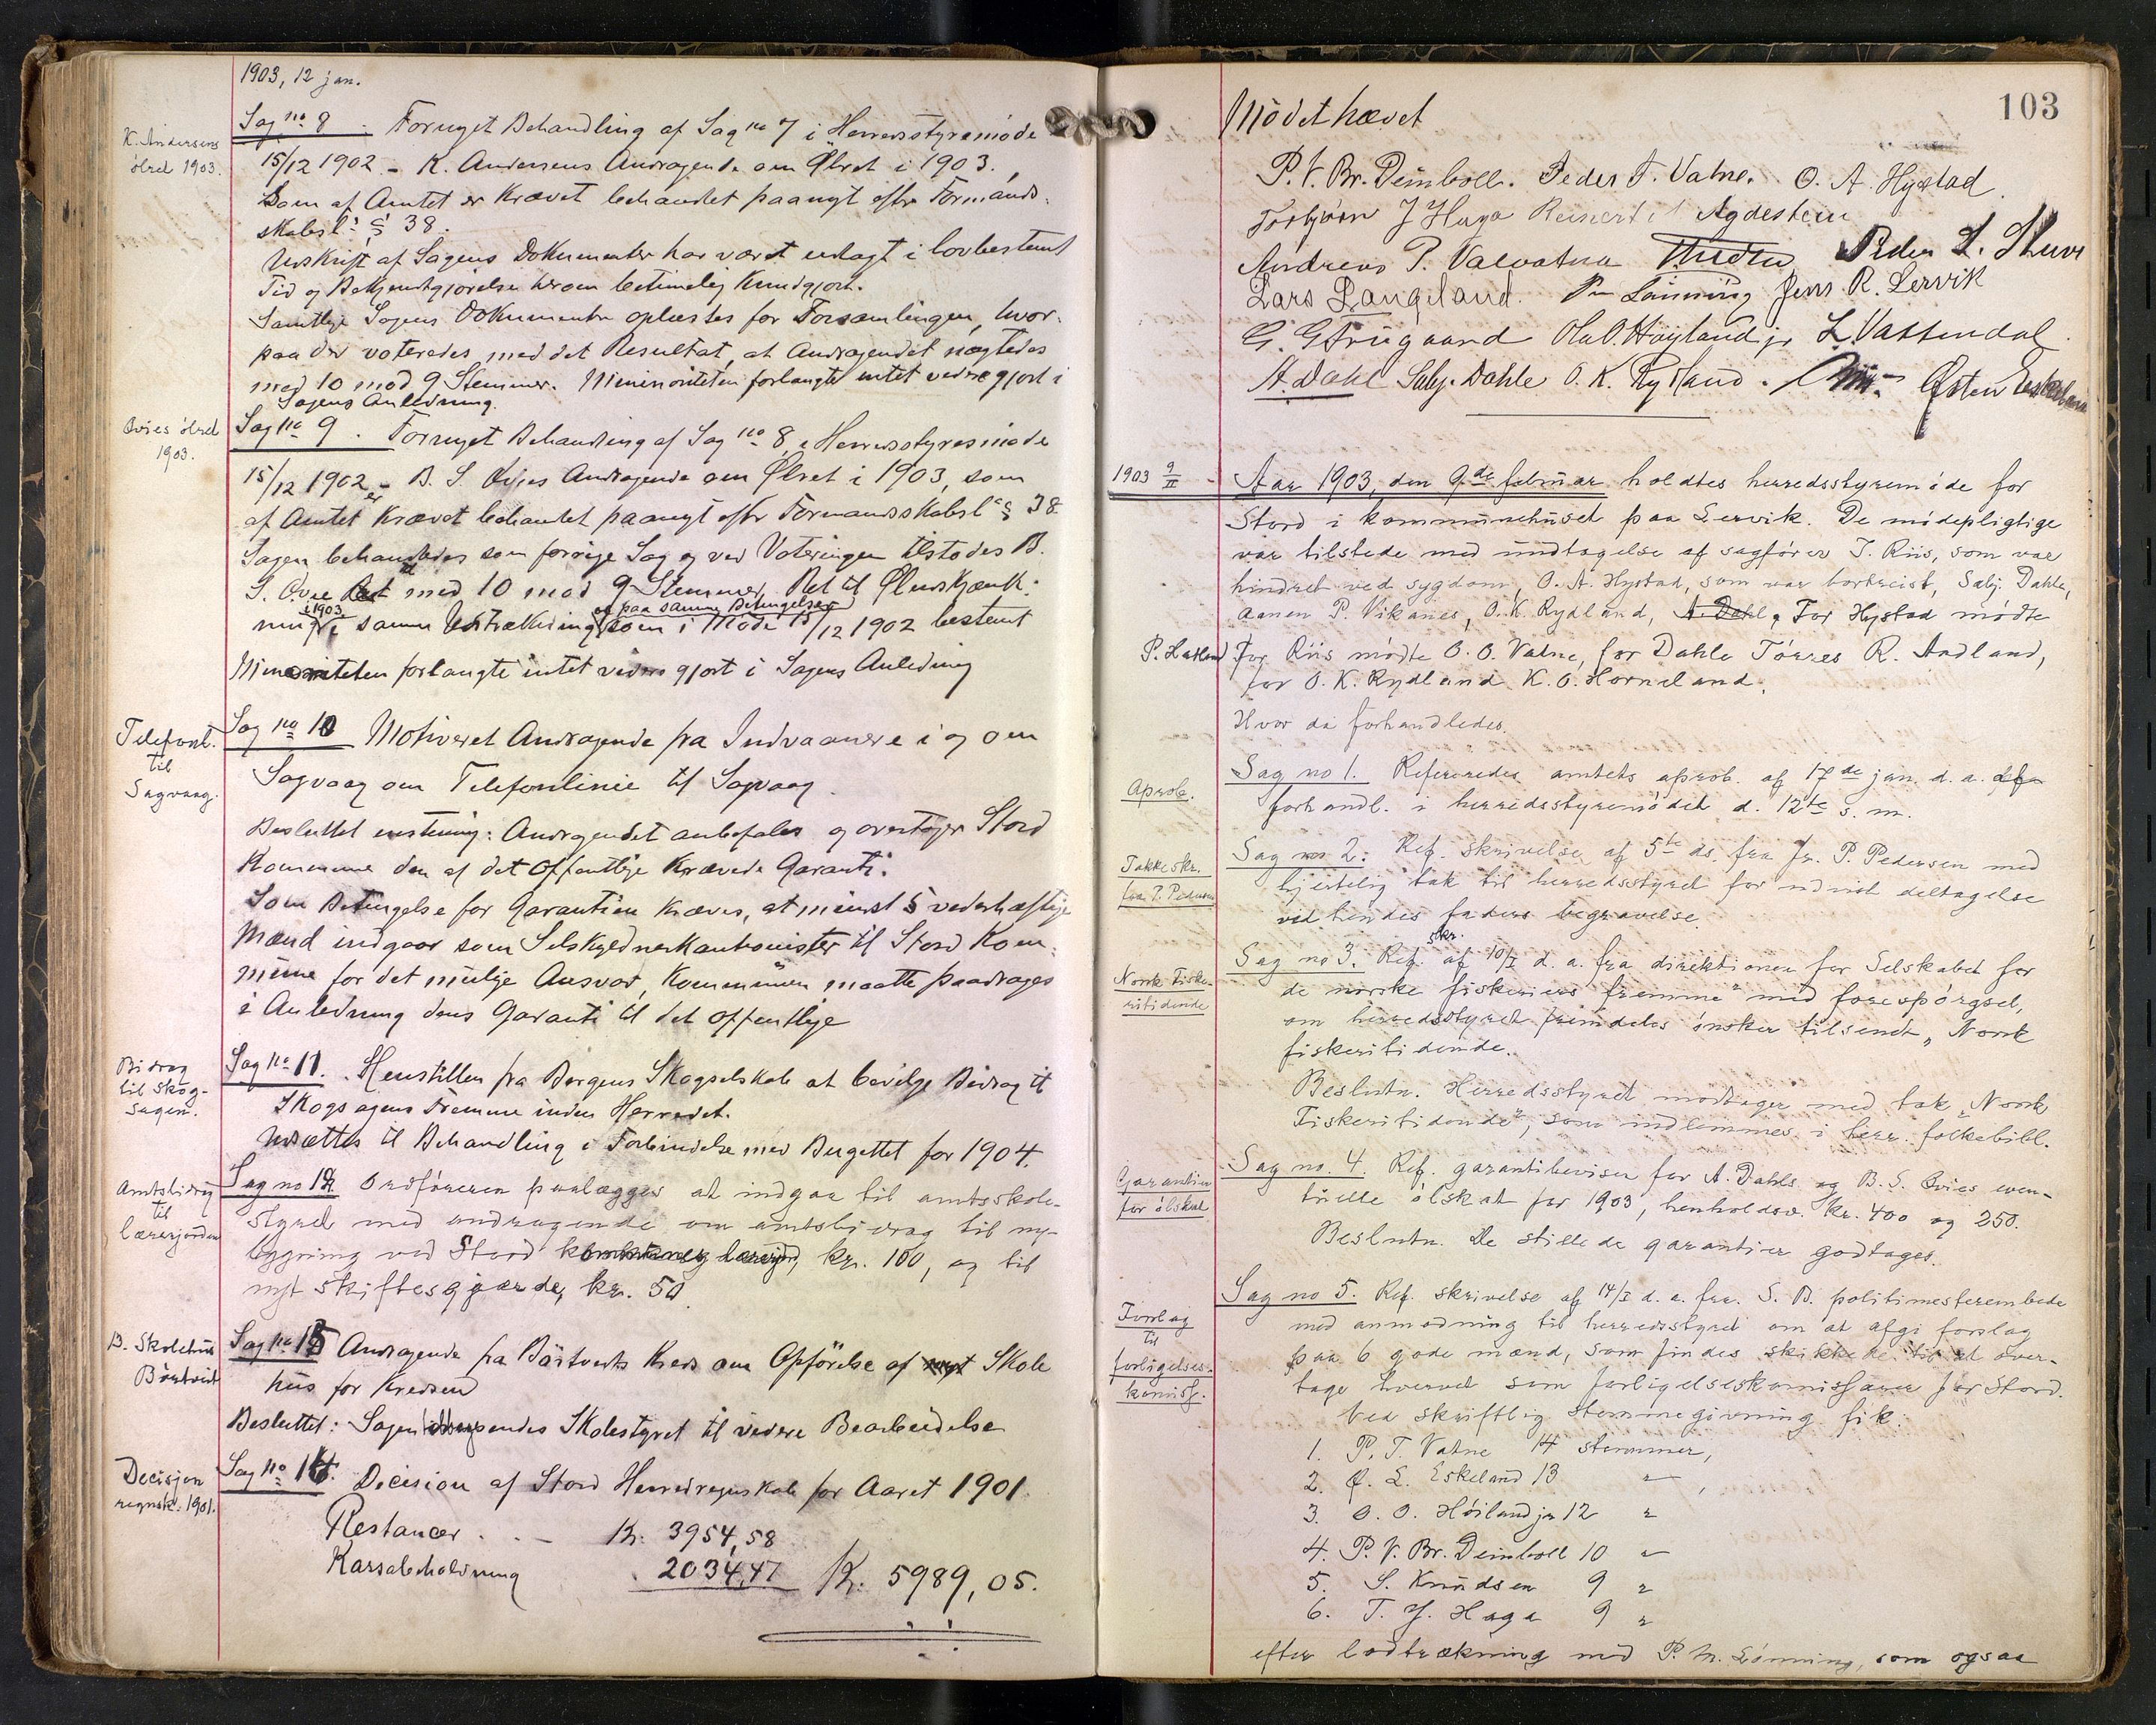 1903, 12 jan.
K. Andersens
ölret 1903.
Sag no 8. Fornyet Behandling af Sag no 7 i Herredsstyremöde
15/12 1902 - K. Andersens Andragende om Ölret i 1903,
Som af Amtet er Krævet behandlet paanyt efter Formands-
skabsl: § 38.
Udskrift af Sagens Dokumenter har været udlagt i lovbestemt
Tid og Bekjendtgjörelse herom betimelig Kundgjort.
Samtlige Sagens Dokumenter oplæstes for Forsamlingen, hvor-
paa der voteredes med det Resultat, at Andragendet nægtedes
med 10 mod 9 Stemmer. Minoriteten forlangte intet videre gjort i
Sagens Anledning.
Övies ölret
1903.
Sag no 9. Fornyet Behandling af Sag no 8 i Herredsstyresmöde
15/12 1902 - B. S. Övies Andragende om Ölret i 1903, som
af Amtet er Krævet behandlet paanyt efter Formandsskabsl § 38
Sagen behandledes som forrige Sag og ved Voteringen tilstodes B.
S. Övie med 10 mod 9 Stemmer Ret til Öludskjænk-
ning i 1903 i samme Udstrækning og paa samme Betingelser som i Möde 15/12 1902 bestemt
Minoriteten forlangte intet videre gjort i Sagens Anledning
Telefonl.
til
Sagvaag.
Sag no 10 Motiveret Andragende fra Indvaanere i og om
Sagvaag om Telefonlinie til Sagvaag.
Besluttet enstemig: Andragendet anbefales og overtager Stord
Kommune den af det Offentlige Krævede Garanti.
Som Betingelse for Garantien Kræves, at mindst 5 vederhæftige
Mænd indgaar som Selvskyldnerkautionister til Stord Kom-
mune for det mulige Ansvar, Kommunen maatte paadrages
i Anledning dens Garanti til det offentlige
Bidrag
til Skog-
sagen.
Sag no 11. Henstillen fra Bergens Skogselskab at bevilge Bidrag til
Skogsagens Fremme inden Herredet.
Udsættes til Behandling i Forbindelse med Bugettet for 1904.
Amtsbidrag
til
lærerjorden
Sag no 12 Ordföreren paalægges at indgaa til amtsskole-
styret med andragende om amtsbidrag til ny-
bygning ved Stord lærerjord, kr. 100, og til
nyt skiftesgjærde, kr. 50
B. Skolehus
Börtveit
Sag no 13 Andragende fra Börtveits Kreds om Opförelse af Skole
hus for Kredsen
Besluttet: Sagen Skolestyret til videre Bearbeidelse
Decisjon
regnsk. 1901.
Sag no 14. Decision af Stord Herredregnskab for Aaret 1901.
Restancer . . - Kr. 3954,58
Kassabeholdning 2034,47 Kr. 5989,05.
103
Mödet hævet
P. V. Br. Deinboll. Peder T. Vatne. O. A. Hystad
Torbjörn J Haga Reinert Agdestein
Andreas P. Valvatna Peder L.
Lars Langeland. Lönning Jens R. Lervik
G. Ola O. Höyland jr L Vattendal
A. Dahl Salg. Dahle O. K. Rydland. Östen Eskeland
1903 9/II
Aar 1903, den 9de februar holdtes herredsstyremöde for
Stord i kommunehuset paa Lervik. De mödepligtige
var tilstede med undtagelse af sagförer J. Riis, som var
hindret ved sygdom, O. A. Hystad, som var bortreist, Salg. Dahle,
Aanen P. Vikanes, O. K. Rydland, A. Dahl. For Hystad mödte
P. Hatland For Riis mödte O. O. Vatne, for Dahle Törres R. Aadland,
for O. K. Rydland K. O. Horneland.
Hvor da forhandledes.
Aprob.
Sag no 1. Refereredes amtets aprob. af 17de jan. d. a.
forhandl. i herredsstyremödet d. 12te s. m.
Takkeskr.
fra P. Pedersen
Sag no 2. Ref. skrivelse af 5te ds. fra fr. P. Pedersen med
hjertelig tak til herredsstyret for udvist deltagelse
ved hendes faders begravelse.
Norsk Fiske-
ritidende
Sag no 3. Ref. skr. af 10/I d. a. fra direktionen for Selskabet for
de norske fiskeriers fremme" med forespörgsel,
om herredsstyret fremdeles önsker tilsendt „Norsk
fiskeritidende.
Beslutn. Herredsstyret modtager med tak „Norsk
Fiskeritidende", som indlemmes i herr. folkebibl.
Garantier
for ölskat
Sag no. 4. Ref. garantibeviser for A. Dahls og B. S. Övies even-
tuelle ölskat for 1903, henholdsv. kr. 400 og 250.
Beslutn. De stillede garantier godtages.
Forslag
til
forligelses-
komiss.
Sag no 5. Ref. skrivelse af 14/I d. a. fra S. B. politimesterembede
med anmodning til herredsstyret om at afgi forslag
paa 6 gode mænd, som findes skikkede til at over-
tage hvervet som forligelseskomissærer for Stord.
Ved skriftlig stemmegivning fik:
1. P. T. Vatne 14 stemmer,
2. Ö. L. Eskeland 13 "
3. O. O. Höiland jr 12 "
4. P. V. Br. Deinboll 10 "
5. S. Knudsen 9 "
6. T. J. Haga 9 "
efter lodtrækning med P. M. Lönning, som ogsaa